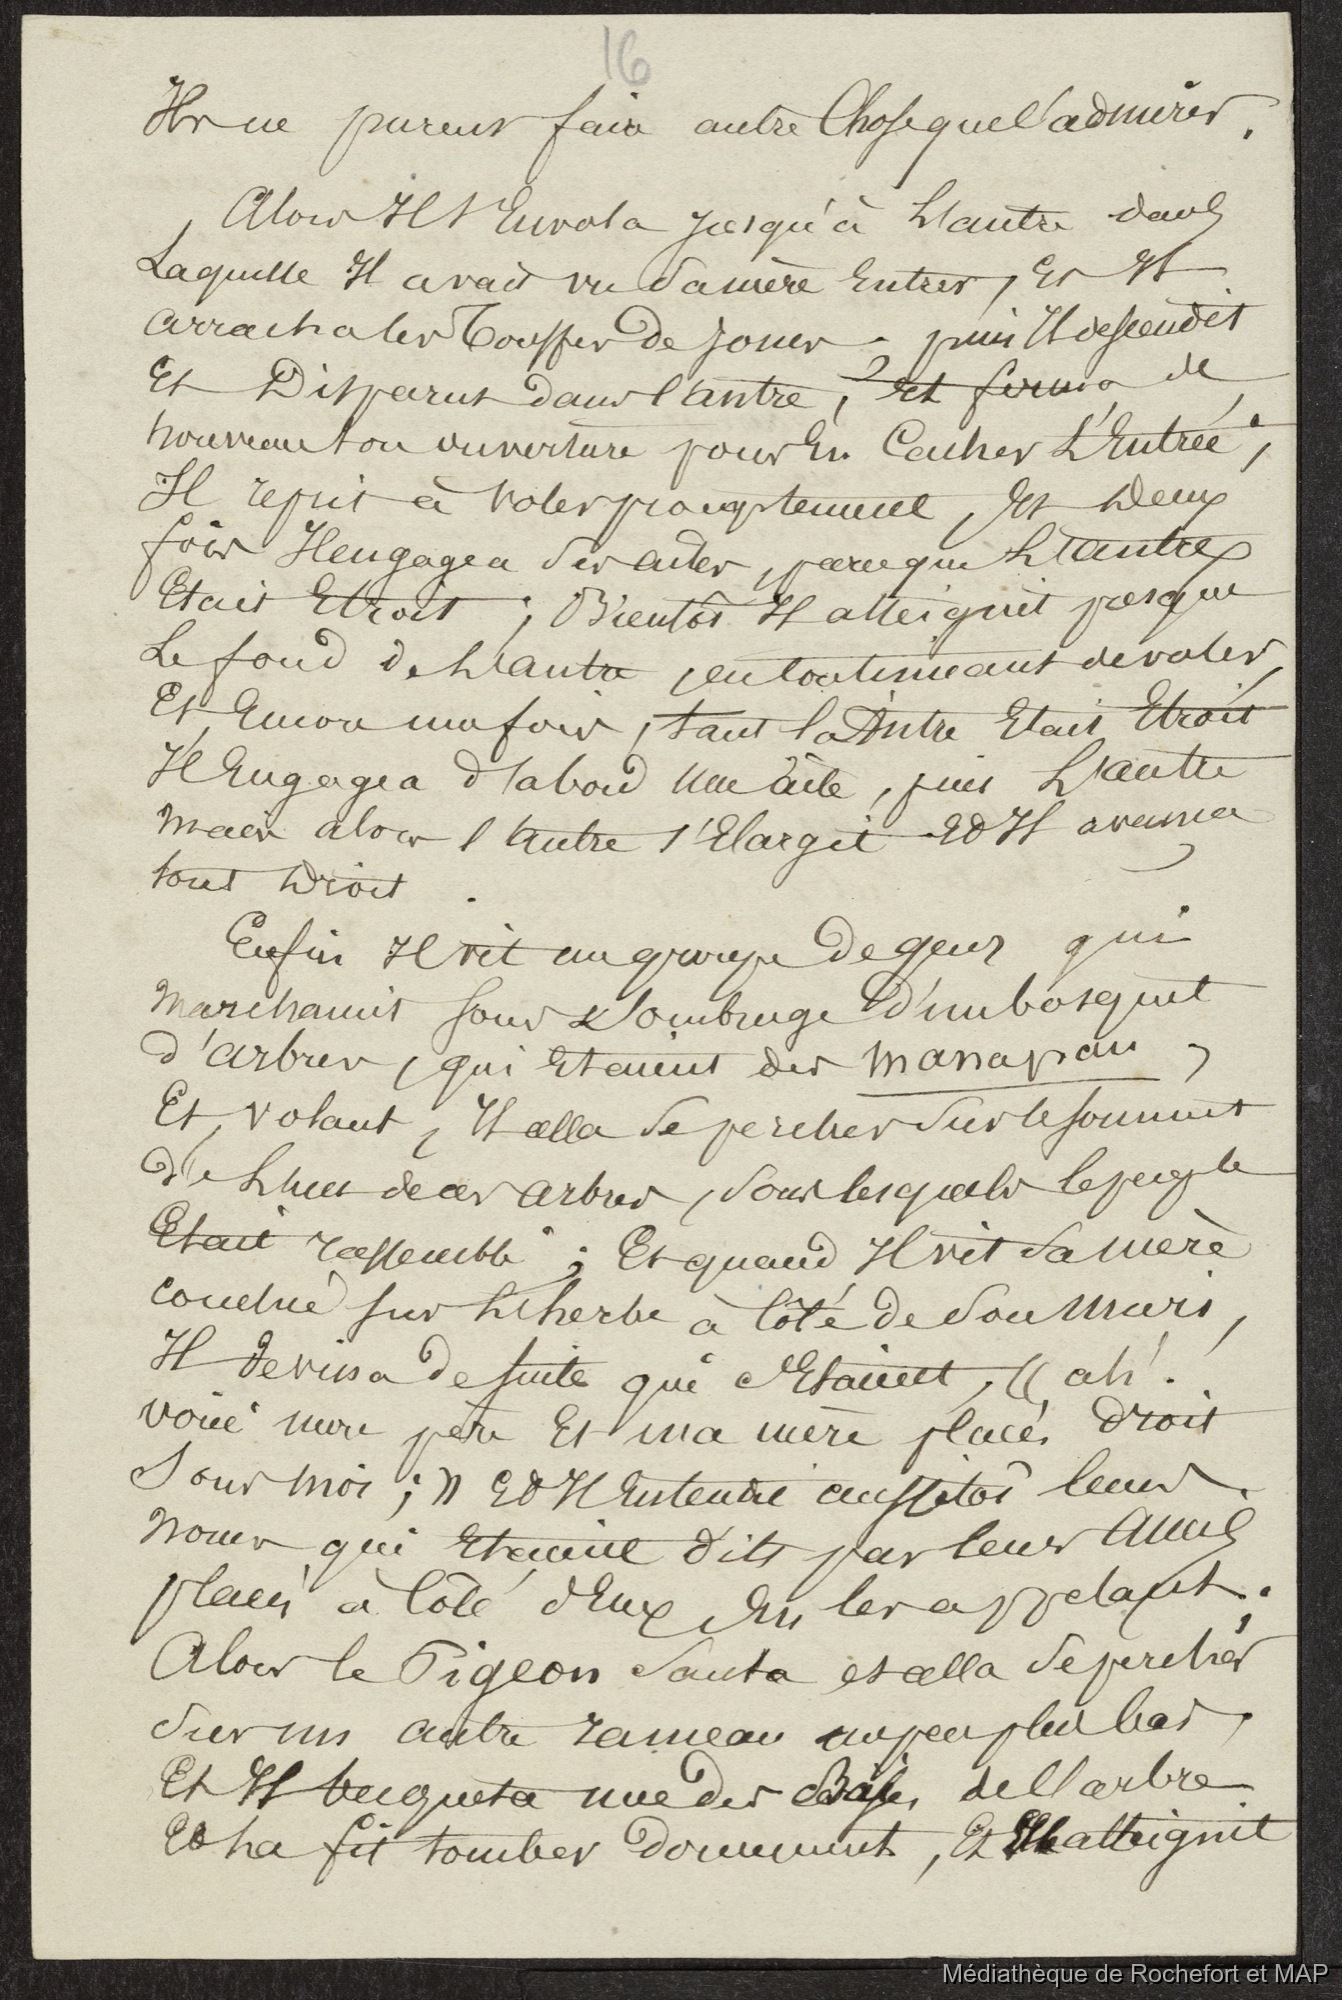 16
Ils ne purent faire autre Chose que l'admirer.
Alors Il s'Envola jusqu'à L'antre dans
Laquelle Il avait vu sa mère Entrer, Et Il
arracha les Touffes de joncs ; puis Il descendit
Et Disparut dans l'antre, et ferma de
nouveau son ouverture pour En Cacher L'Entrée ;
Il reprit à voler promptement, Et Deux
fois Il engagea ses ailes, parceque L'antre
Etait Etroit ; Bientôt Il atteignit presque
Le fond de L'antre, en continuant de voler,
Et Encore une fois, tant l'antre Etait Etroit
Il Engagea d'abord Une aîle, puis L'autre
mais alors l'antre s'Elargit Et Il avança
tout Droit.
Enfin Il vit un groupe de gens qui
marchaient sous L'ombrage d'un bosquet
d'arbres, qui Etaient des Manapau,
Et, volant, Il alla se percher sur le sommet
de L'un de ces arbres, sous lesquels le peuple
Etait rassemblé ; Et quand Il vit sa mère
couchée sur L'herbe à Côté de son Mari,
Il devina de suite qui c'Etaient, « ah !
voici mon père Et ma mère placés droit
sous moi ; » Et Il Entendit aussitôt leurs
noms qui Etaient dits par leurs Amis
placés à Côté d'Eux En les appelant ;
Alors le Pigeon sauta et alla se percher
sur un autre rameau un peu plus bas,
Et Il becqueta une des Baies de l'arbre
Et La fit tomber doucement, Et Elle atteignit
Médiathèque de Rochefort et MAP